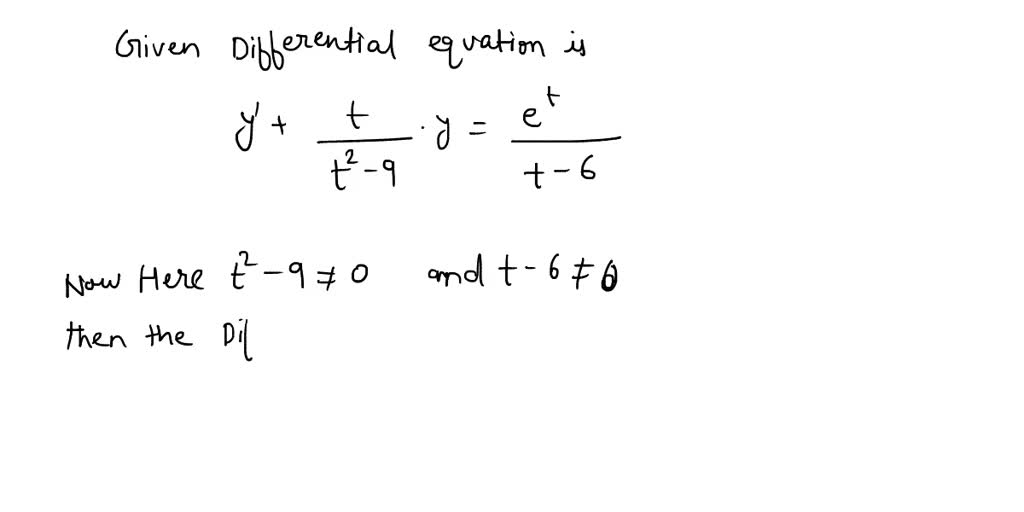 Given Differential equation is
y' + t/(t²-9) · y = e^t/(t-6)
Now Here t²-9 ≠ 0 and t-6 ≠ 0
then the Dif